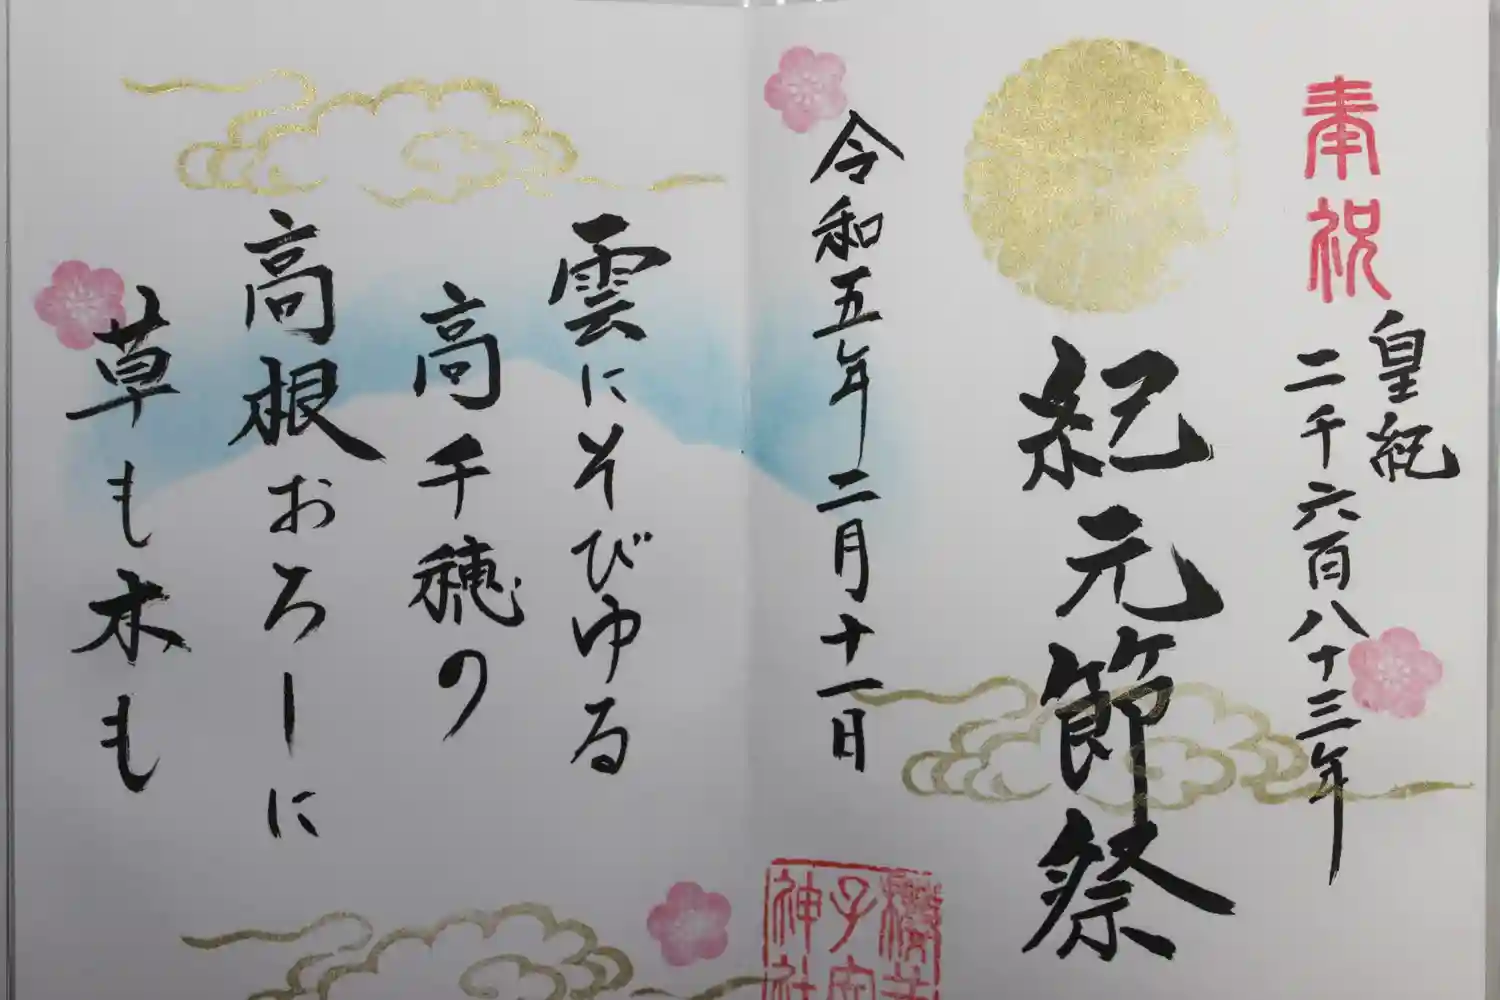 奉祝
皇紀
二千六百八十三年
紀元節祭
令和五年二月十一日
子安
神社
雲にそびゆる
高千穂の
高根おろしに
草も木も